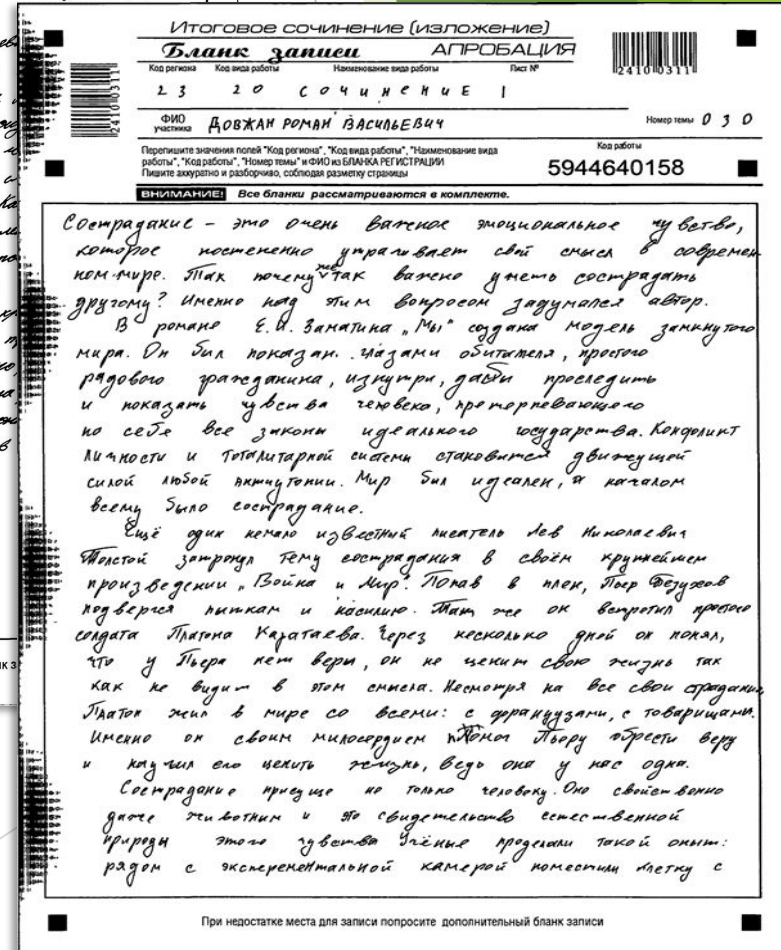 Итоговое сочинение (изложение)
Бланк записи АПРОБАЦИЯ
Код региона Код вида работы Наименование вида работы Лист №
23 20 СОЧИНЕНИЕ 1
2410 0311
2410 0311
ФИО участника ДОВЖАН РОМАН ВАСИЛЬЕВИЧ
Номер темы 030
Перепишите значения полей "Код региона", "Код вида работы", "Наименование вида
работы", "Код работы", "Номер темы" и ФИО из БЛАНКА РЕГИСТРАЦИИ
Пишите аккуратно и разборчиво, соблюдая разметку страницы
Код работы
5944640158
ВНИМАНИЕ! Все бланки рассматриваются в комплекте.
Сострадание – это очень важное эмоциональное чувство,
которое постепенно утрачивает свой смысл в современ-
ном мире. Так почему же так важно уметь сострадать
другому? Именно над этим вопросом задумался автор.
В романе Е.И. Замятина „Мы" создана модель замкнутого
мира. Он был показан глазами обитателя, простого
рядового гражданина, изнутри, дабы проследить
и показать чувства человека, претерпевающего
по себе все законы идеального государства. Конфликт
личности и тоталитарной системы становится движущей
силой любой антиутопии. Мир был идеален, а началом
всему было сострадание.
Ещё один немало известный писатель Лев Николаевич
Толстой затронул тему сострадания в своём крупнейшем
произведении „Война и Мир". Попав в плен, Пьер Безухов
подвергся пыткам и насилию. Там же он встретил простого
солдата Платона Каратаева. Через несколько дней он понял,
что у Пьера нет веры, он не ценит свою жизнь так
как не видит в этом смысла. Несмотря на все свои страдания,
Платон жил в мире со всеми: с французами, с товарищами.
Именно он своим милосердием помог Пьеру обрести веру
и научил его ценить жизнь, ведь она у нас одна.
Сострадание присуще не только человеку. Оно свойственно
даже животным и это свидетельство естественной
природы этого чувства Учёные проделали такой опыт:
рядом с эксперементальной камерой поместили клетку с
При недостатке места для записи попросите дополнительный бланк записи